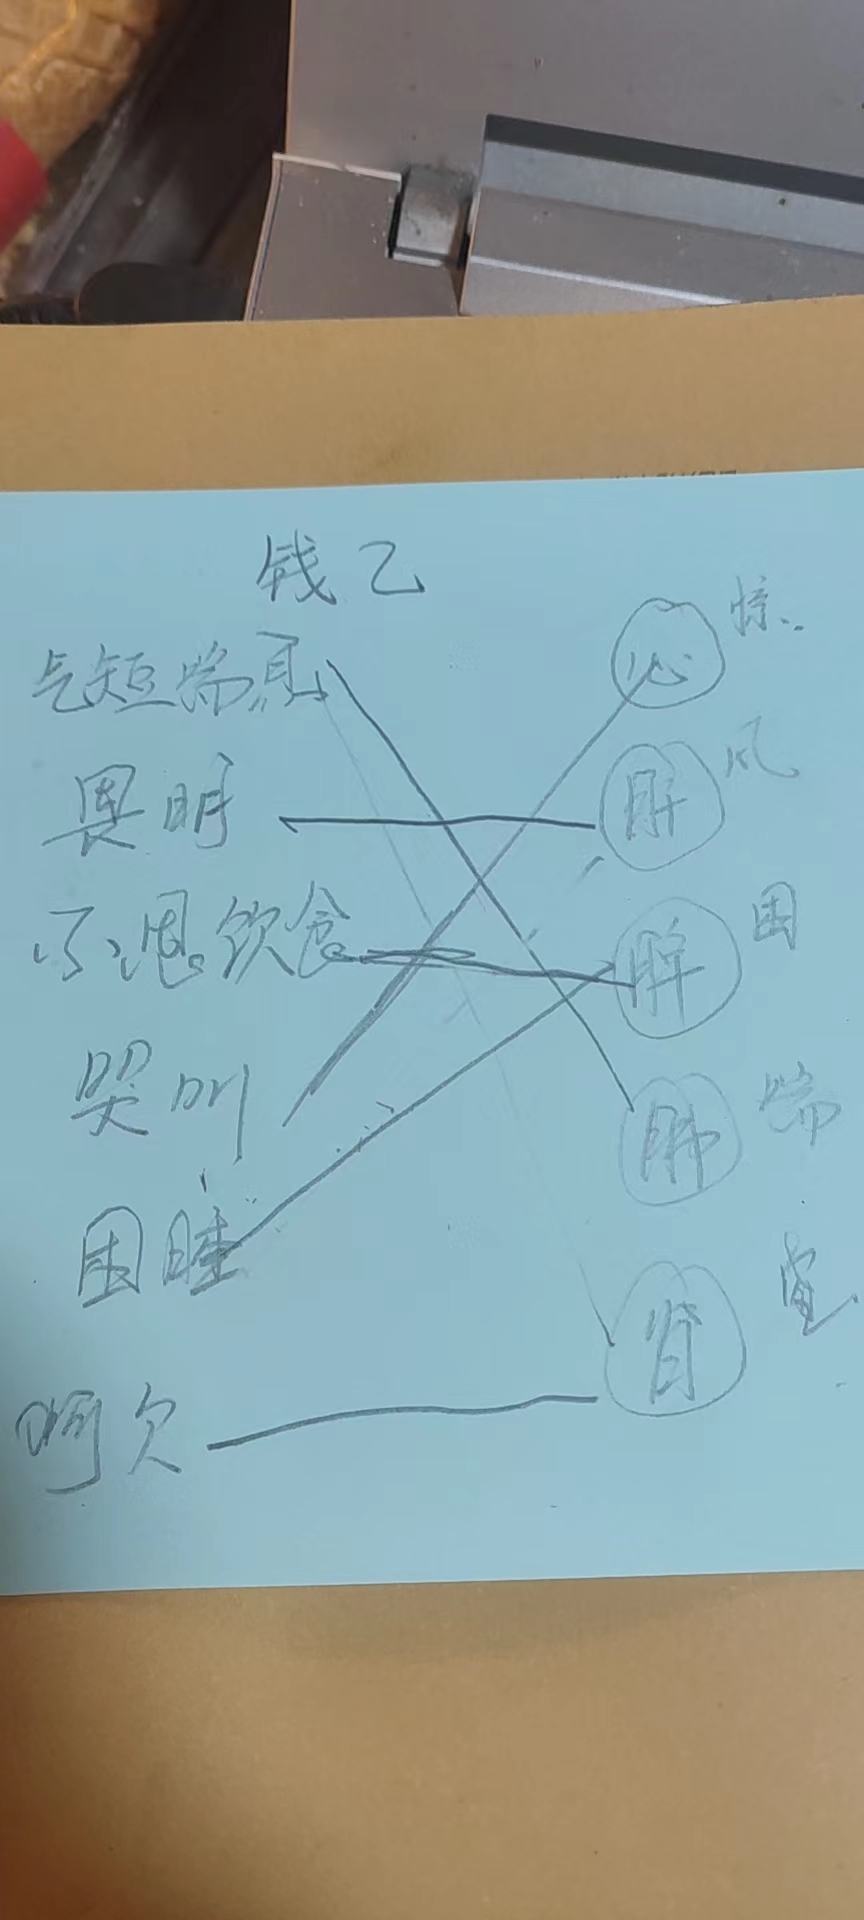 钱乙
气短喘息
心
惊
畏明
肝
风
不思饮食
脾
困
哭叫
肺
喘
困睡
肾
虚
呵欠